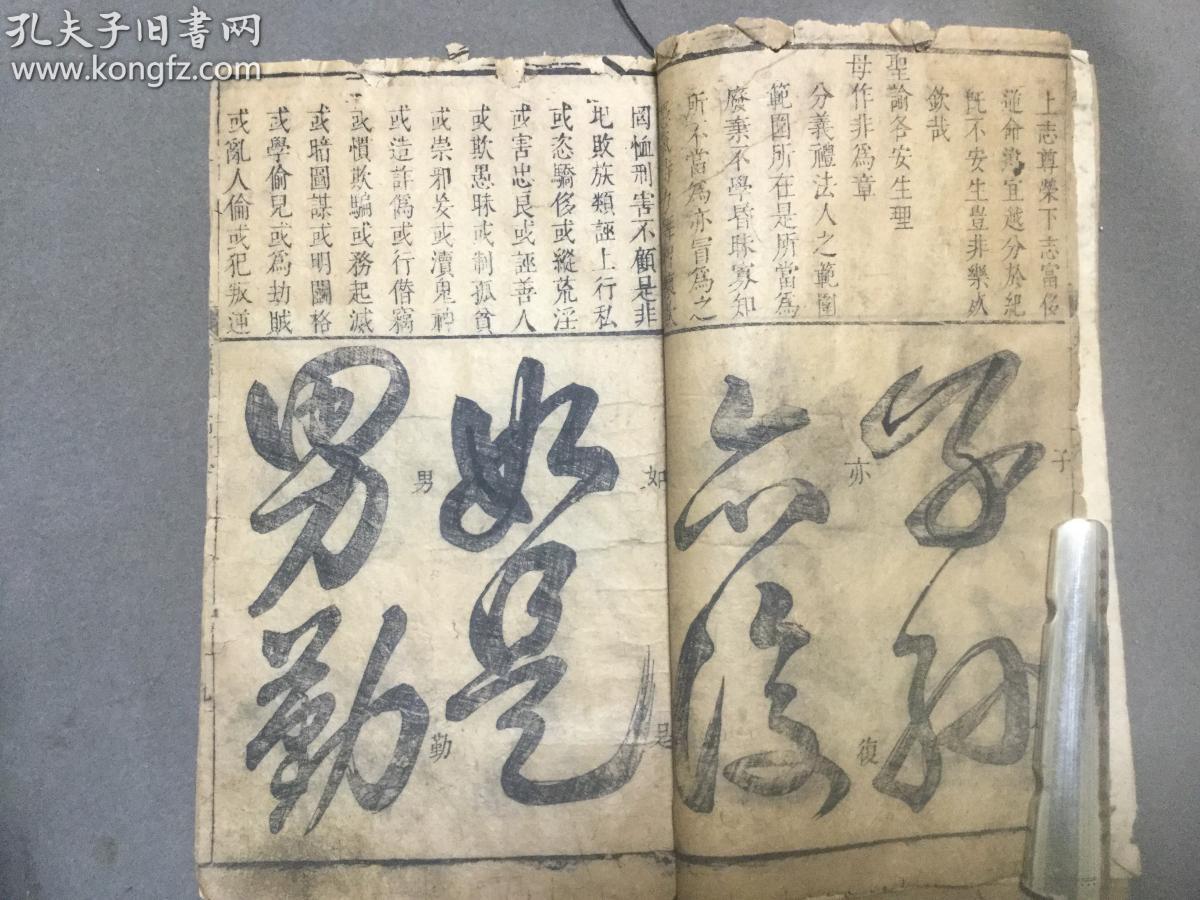 孔夫子旧书网
www.kongfz.com
上志尊榮下志富侈
逆命 宜越分於紀
既不安生豈非樂
欽哉
聖諭各安生理
毋作非為章
分義禮法人之範圍
範圍所在是所當為
廢棄不學昏昧寡知
所不當為亦冒為之
國恤刑害不顧是非
圯敗族類誣上行私
或恣驕侈或縱荒淫
或害忠良或誣善人
或欺愚昧或制孤貧
或崇邪妄或瀆鬼神
或造詐偽或行僭竊
或慣欺騙或務起滅
或暗圖謀或明鬭格
或學偷兒或為劫賊
或亂人倫或犯叛逆
子孫
子
亦復
亦
復
如是
如
是
男勤
男
勤